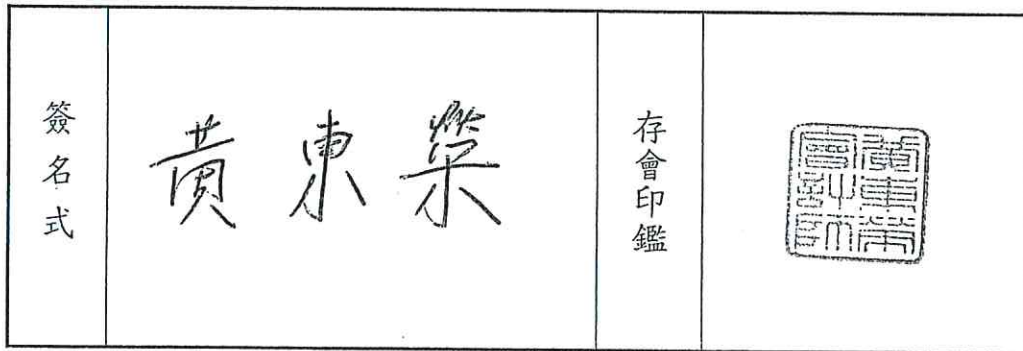 簽名式
黃東榮
存會印鑑
黃東榮
會計師